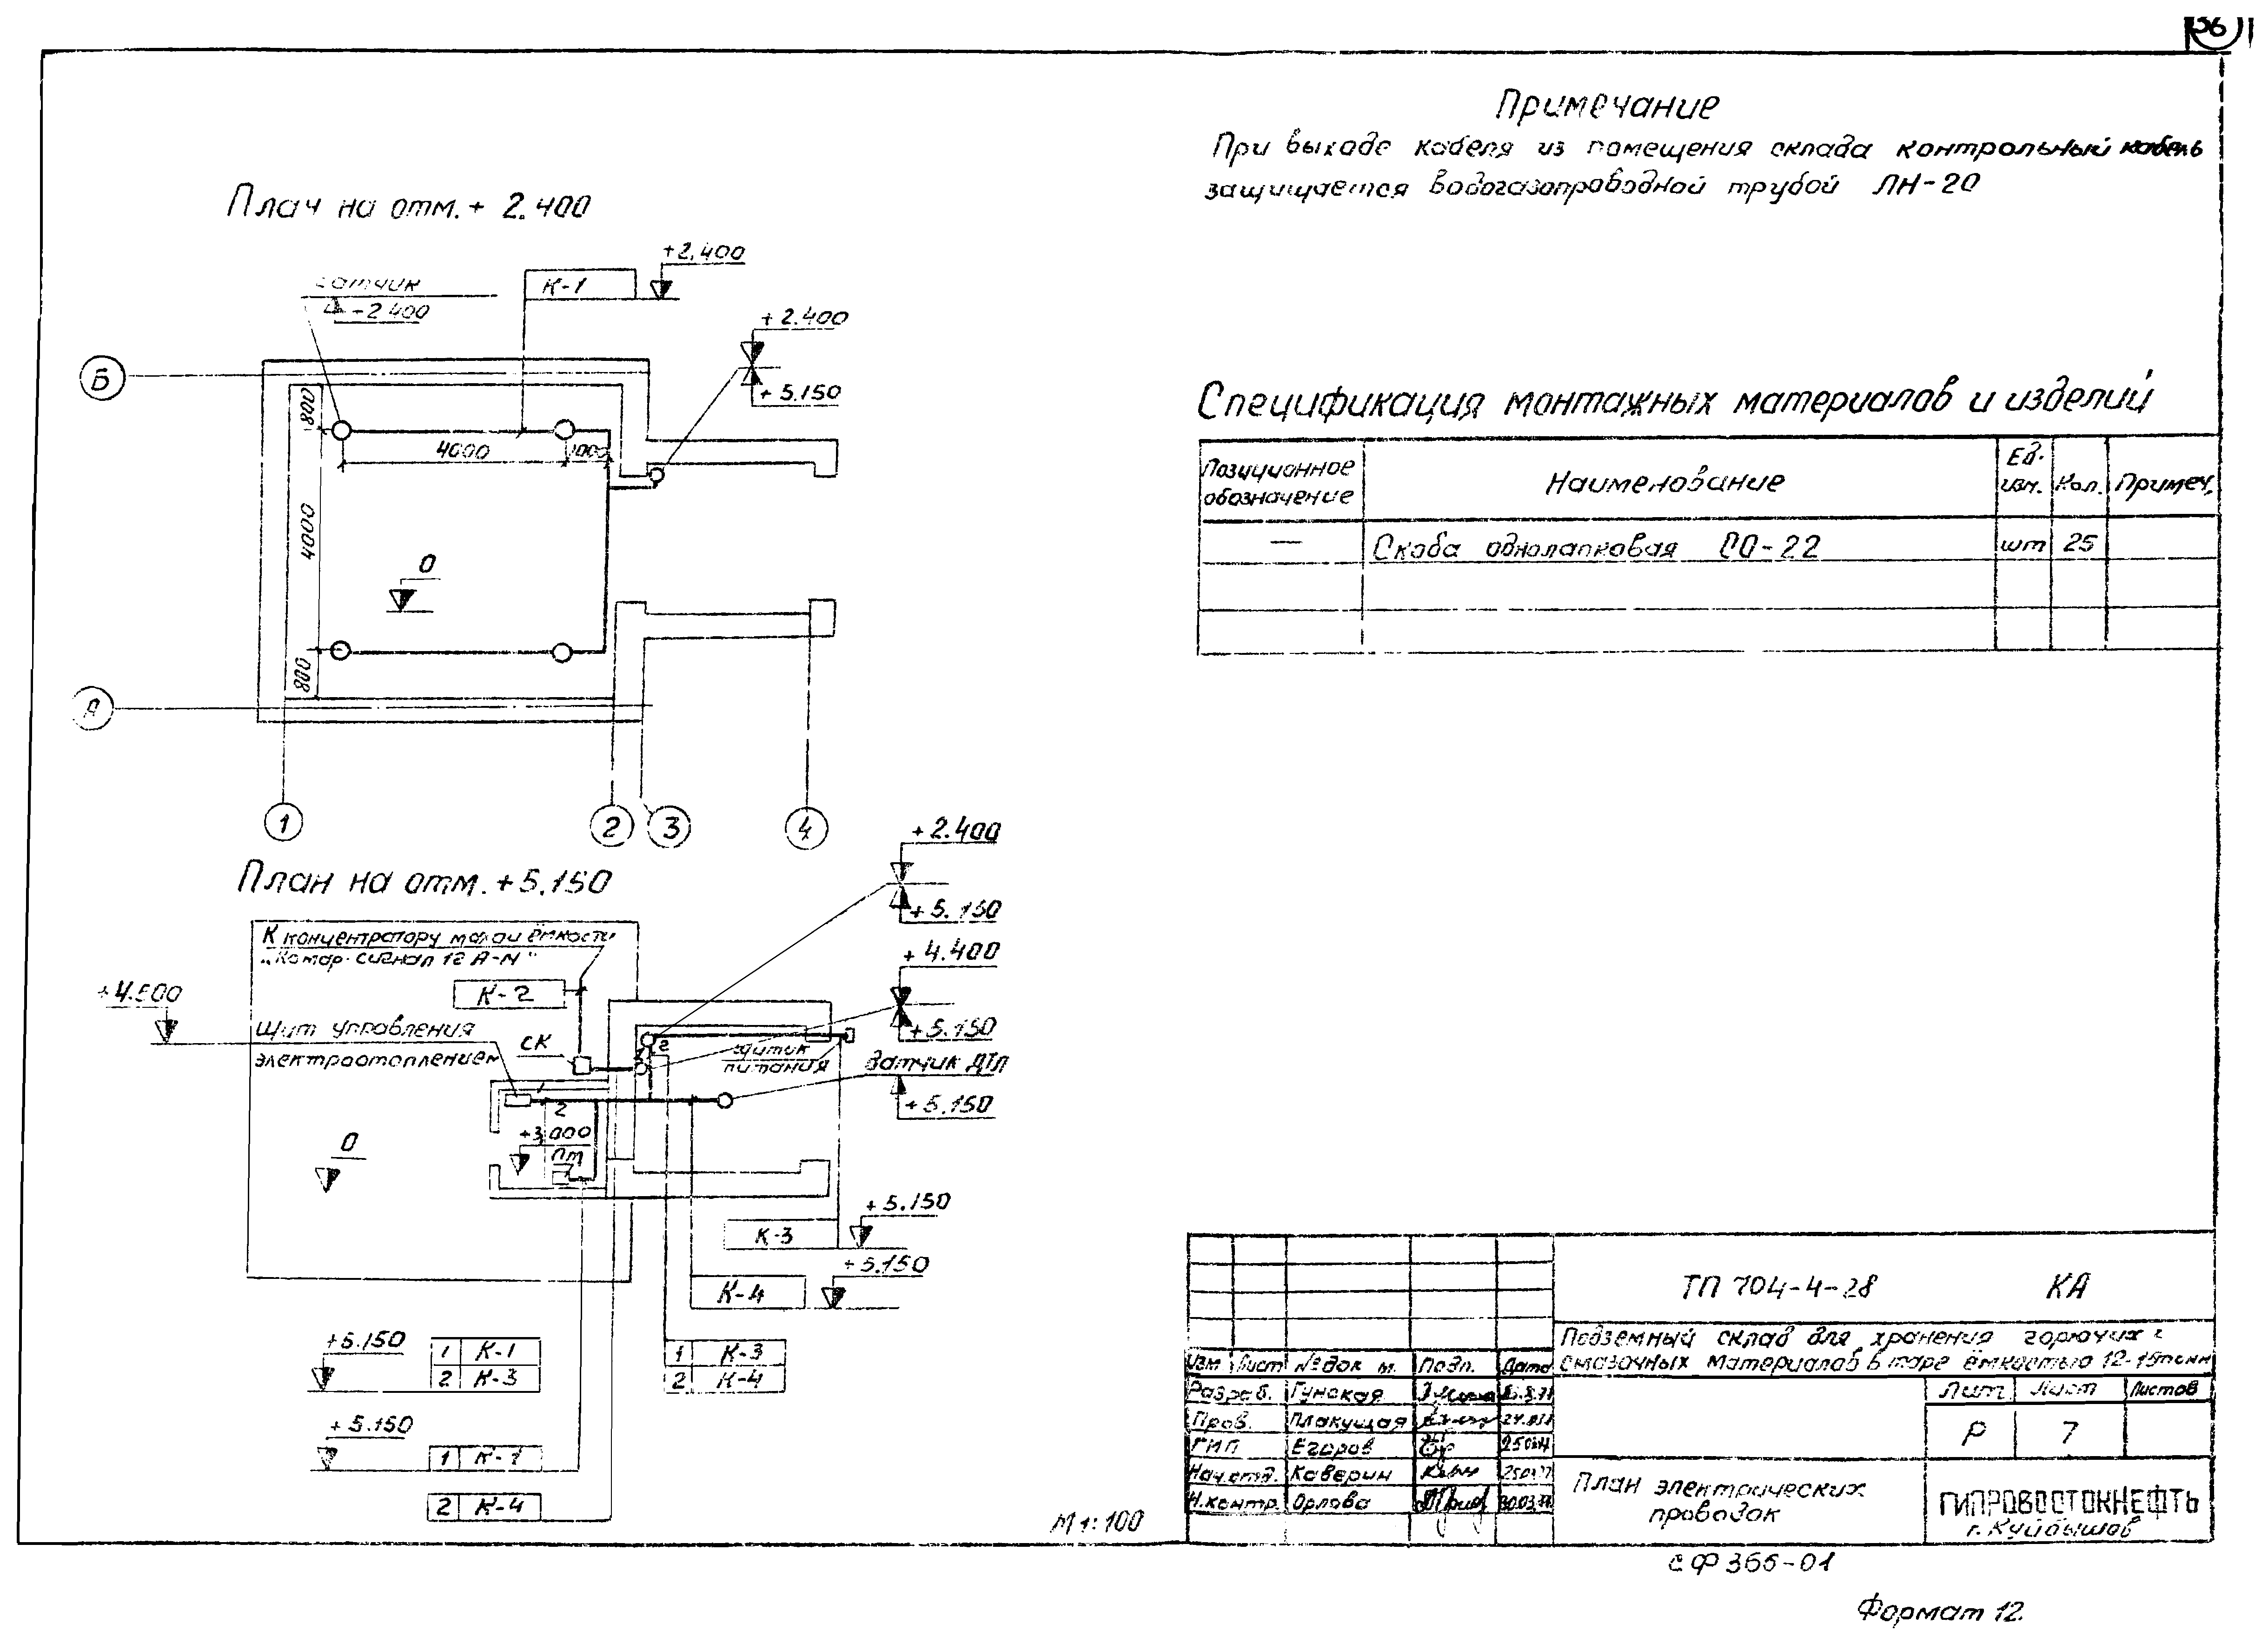 36
Примечание
При выходе кабеля из помещения склада контрольный кабель
защищается водогазопроводной трубой ЛН-20
План на отм. + 2.400
+2,400
К-1
датчик
+2.400
+2.400
+5.150
Б
800
4000
1000
4000
0
800
А
1
2
3
4
Спецификация монтажных материалов и изделий
Позиционное обозначение
Наименование
Ед. изм.
Кол.
Примеч.
—
Скоба однолапковая СО-22
шт
25
План на отм. +5.150
+2.400
+5.150
+4.400
+5.150
К концентратору малой ёмкости
К-2
+4.500
Щит управления
электроотоплением
СК
2
щиток
питания
Датчик ДТЛ
+5.150
2
+3.000
ПТ
0
К-3
+5.150
К-4
+5.150
+5.150
1 К-1
2 К-3
1 К-3
2 К-4
+5.150
1 К-1
2 К-4
М 1:100
ТП 704-4-28 КА
Подземный склад для хранения горючих и
смазочных материалов в таре ёмкостью 12-15тонн
Изм Лист № док м. Подп. Дата
Разраб. Гунская
Пров. Плакущая
ГИП Егоров
Нач.отд. Каверин
Н.контр. Орлова
Лит Лист Листов
Р 7
План электрических
проводок
ГИПРОВОСТОКНЕФТЬ
г. Куйбышев
СФ 366-01
Формат 12.